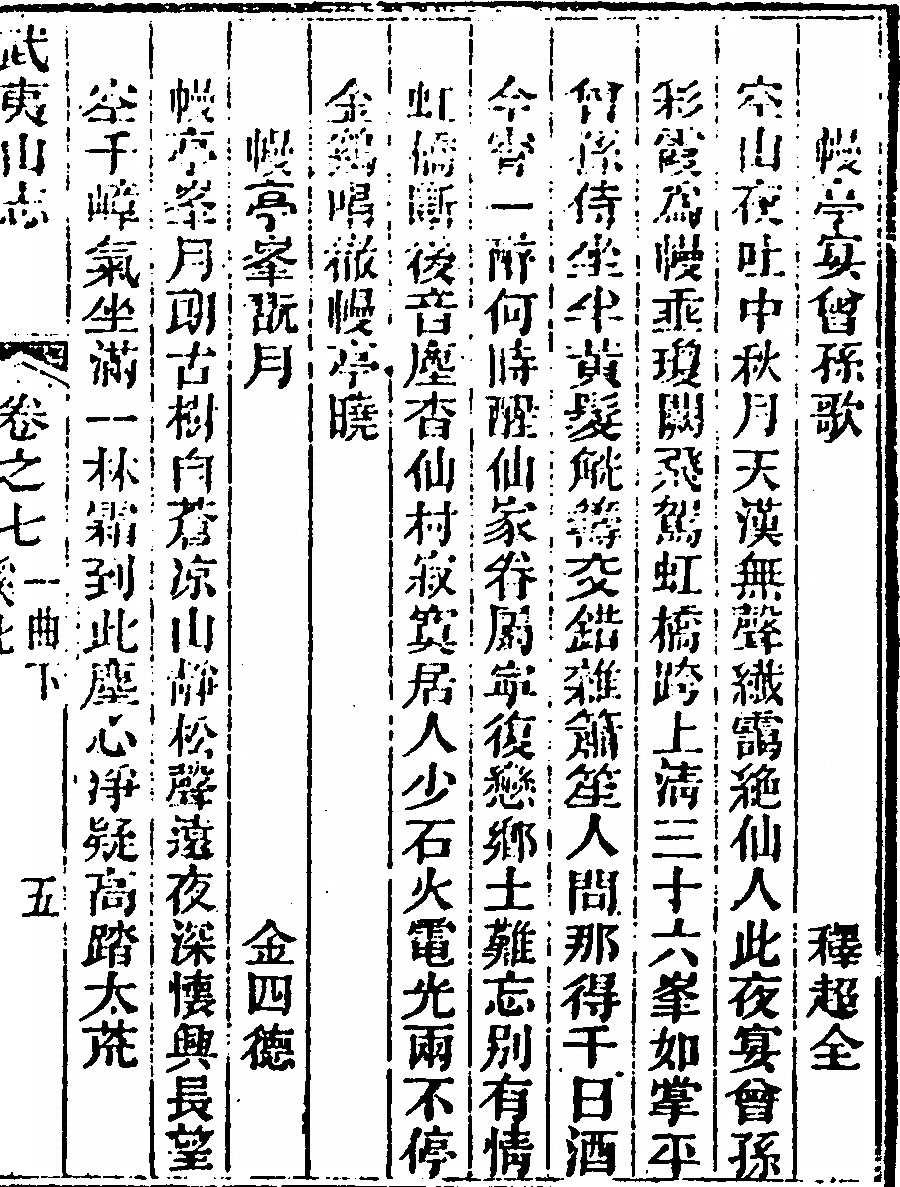 幔亭宴曾孫歌 釋超全
空山夜吐中秋月天漢無聲纖靄絶仙人此夜宴曾孫
彩霞爲幔乖瓊闕飛駕虹橋跨上清三十六峯如掌平
曾孫侍坐半黄髮觥籌交錯雜簫笙人間那得千日酒
今宵一醉何時醒仙家眷屬寧復戀鄉土難忘别有情
虹橋斷後音塵杳仙村寂寞居人少石火電光兩不停
金鷄唱徹幔亭曉
幔亭峯翫月 金四德
幔亭峯月朗古樹白蒼凉山靜松聲遠夜深懷興長望
空千嶂氣坐滿一林霜到此塵心淨疑高踏太荒
武夷山志 卷之七 一曲下 五